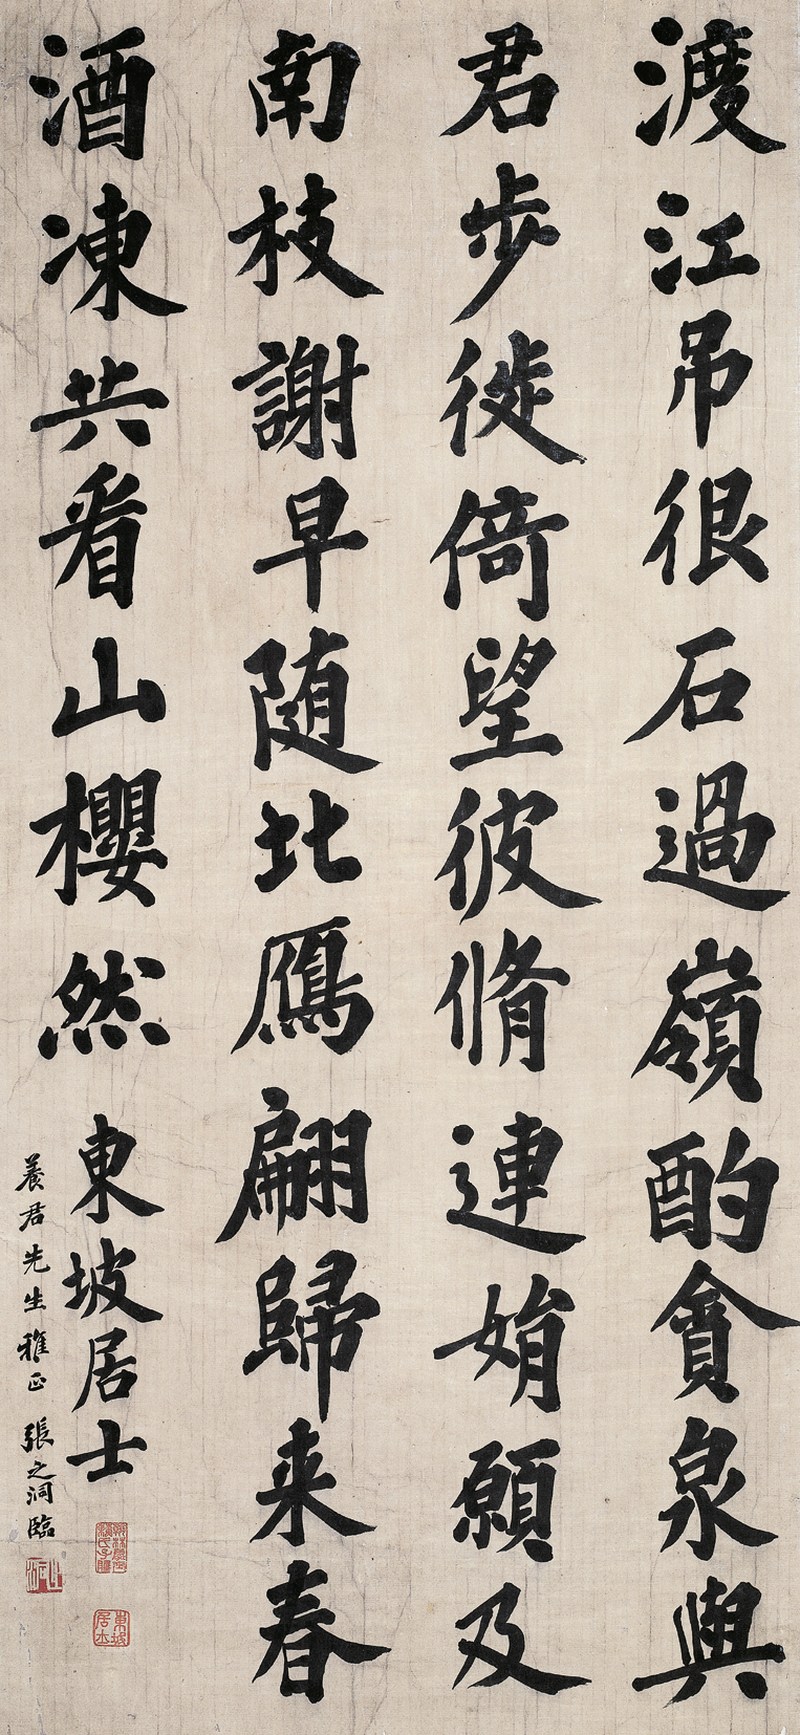 渡江吊很石過嶺酌貪泉與
君步徙倚望彼脩連娟願及
南枝謝早随北鴈翩歸来春
酒凍共看山櫻然
東坡居士
養君先生雅正 張之洞臨
東坡居士